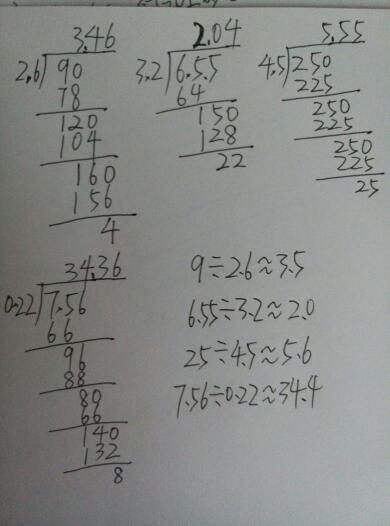 3.46
2.6)90
78
120
104
160
156
4
2.04
3.2)6.5.5
64
150
128
22
5.55
4.5)250
225
250
225
250
225
25
34.36
0.22)7.56
66
96
88
80
66
140
132
8
9÷2.6≈3.5
6.55÷3.2≈2.0
25÷4.5≈5.6
7.56÷0.22≈34.4